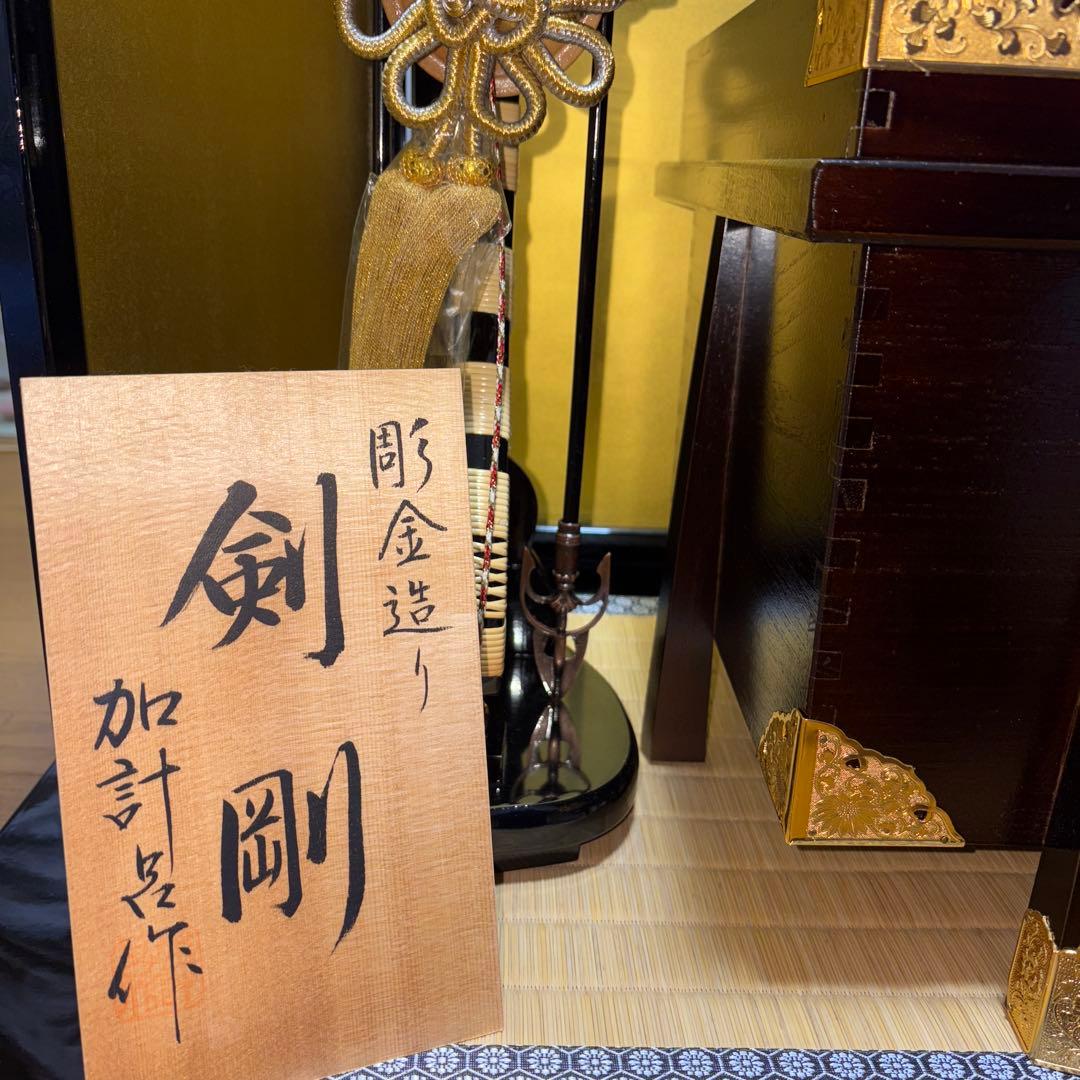 彫金造り
剣剛
加計呂作